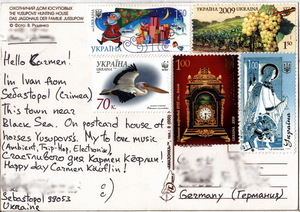 ОХОТНИЧИЙ ДОМ ЮСУПОВЫХ
THE YUSUPOVS' HUNTING HOUSE
DAS JAGDHAUS DER FAMILIE JUSSUPOW
© Фото: В. Руденко
УКРАЇНА 1.50
УКРАЇНА 2009 UKRAINE 1.50
Hello Carmen.
Im Ivan from
Sebastopol (Crimea)
This town near
Black Sea. On postcard house of
horses Yusupovs's. My to love music
(Ambient, Trip-Hop, Electronic)
Счастливого дня Кармен Кёрлин!
Happy day Carmen Kaoflin!
УКРАЇНА
WWF
70 к.
1.00
1.00
УКРАЇНА
Sebastopol 99053
Ukraine
Germany (Германия)